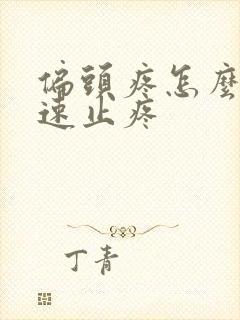 偏頭疼怎麼
速止疼
丁青